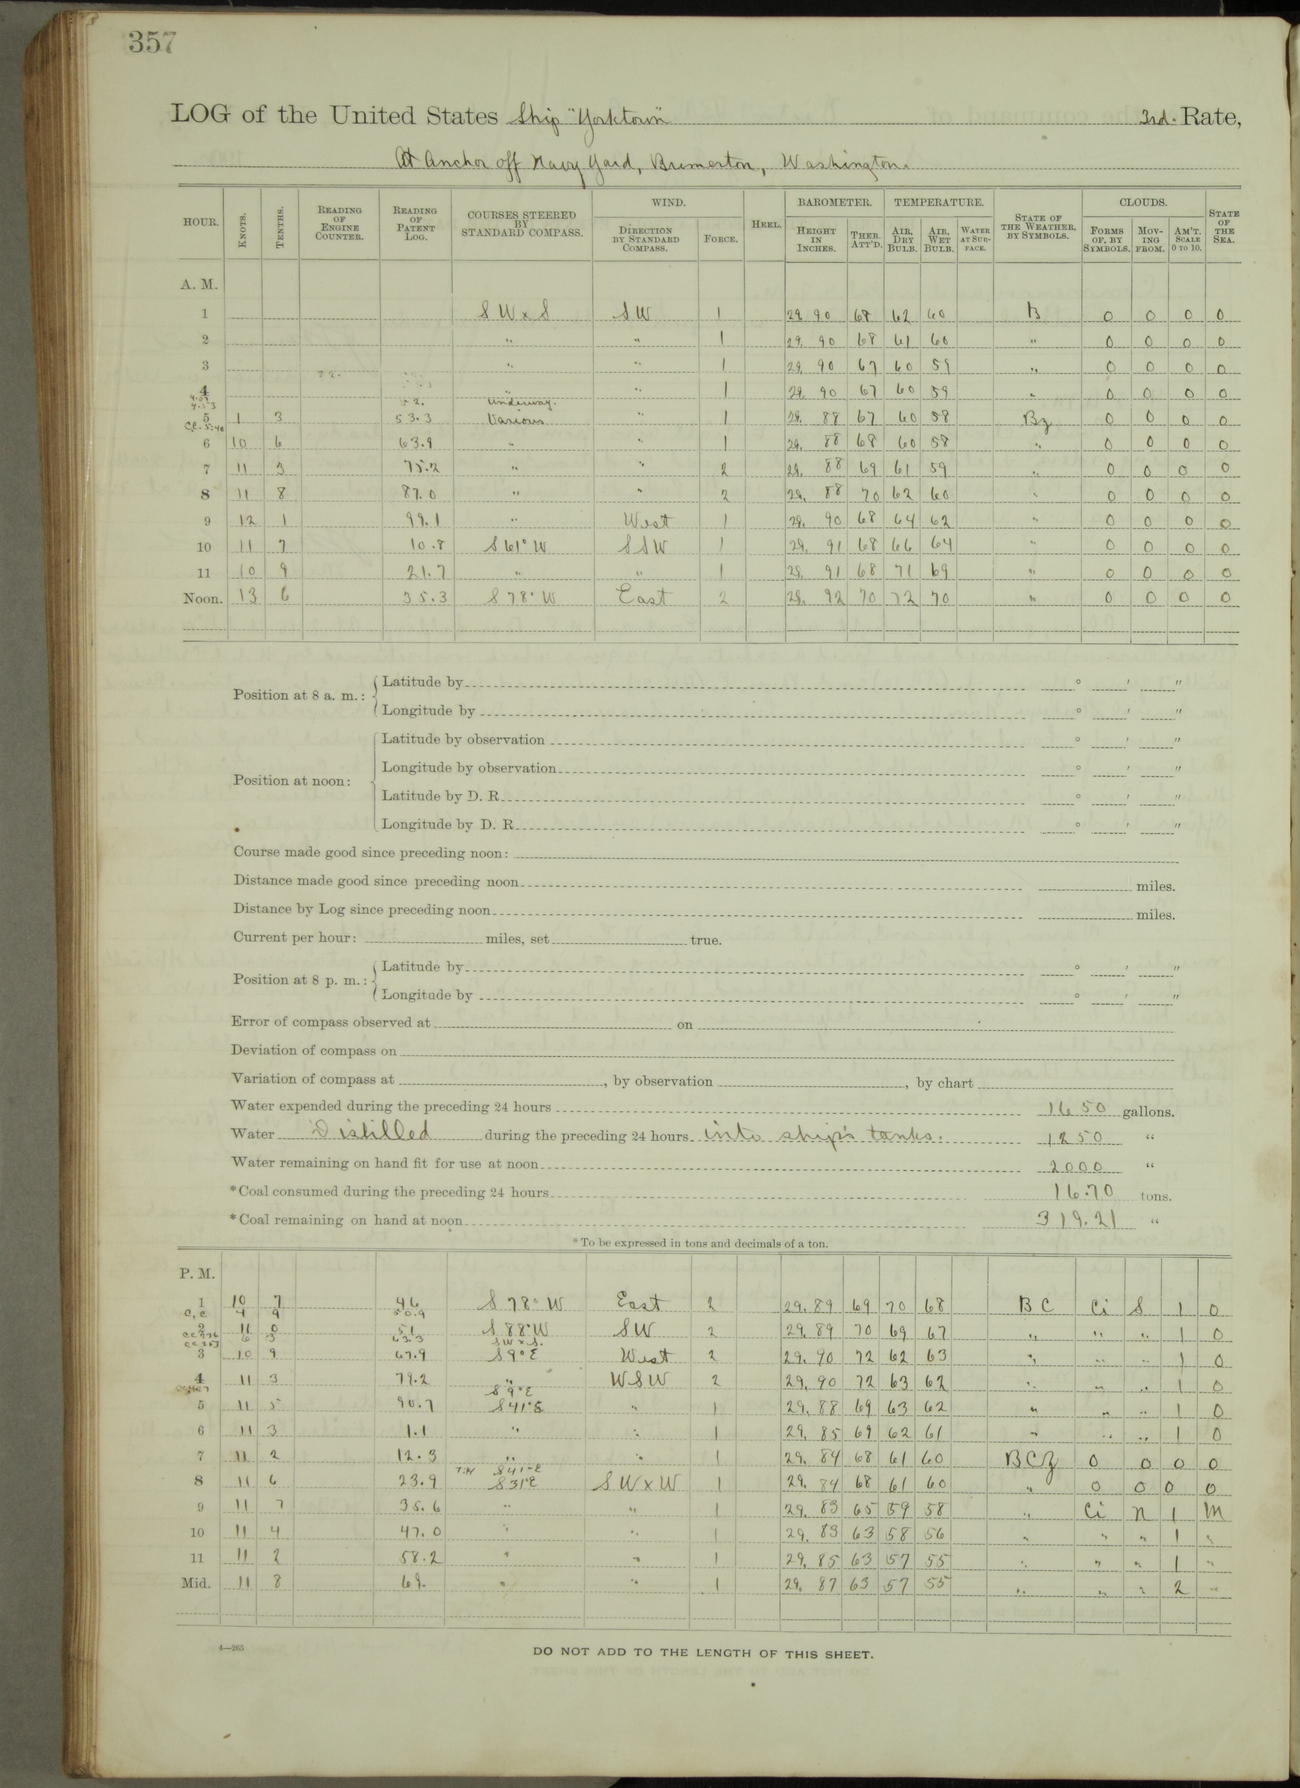 357
LOG of the United States Ship "Yorktown" 3rd. Rate,
At Anchor off Navy Yard, Bremerton, Washington.
HOUR. KNOTS. TENTHS. READING OF ENGINE COUNTER. READING OF PATENT LOG. COURSES STEERED BY STANDARD COMPASS. WIND. DIRECTION BY STANDARD COMPASS. FORCE. HEEL. BAROMETER. HEIGHT IN INCHES. THER. ATT'D. TEMPERATURE. AIR, DRY BULB. AIR, WET BULB. WATER AT SURFACE. STATE OF THE WEATHER, BY SYMBOLS. CLOUDS. FORMS OF, BY SYMBOLS. MOVING FROM. AM'T. SCALE 0 TO 10. STATE OF THE SEA.
A. M.
1 S W x S SW 1 29. 90 68 62 60 B 0 0 0 0
2 " " 1 29. 90 68 61 60 " 0 0 0 0
3 " " 1 29. 90 67 60 59 " 0 0 0 0
4 " " 1 29. 90 67 60 59 " 0 0 0 0
52. underway.
5 1 3 53.3 Various " 1 29. 88 67 60 58 Bz 0 0 0 0
6 10 6 63.9 " " 1 29. 88 68 60 58 " 0 0 0 0
7 11 3 75.2 " " 2 29. 88 69 61 59 " 0 0 0 0
8 11 8 87.0 " " 2 29. 88 70 62 60 " 0 0 0 0
9 12 1 99.1 " West 1 29. 90 68 64 62 " 0 0 0 0
10 11 7 10.8 S 61° W SSW 1 29. 91 68 66 64 " 0 0 0 0
11 10 9 21.7 " " 1 29. 91 68 71 69 " 0 0 0 0
Noon. 13 6 35.3 S 78° W East 2 29. 92 70 72 70 " 0 0 0 0
Position at 8 a. m.: Latitude by ° ′ ″
Longitude by ° ′ ″
Position at noon: Latitude by observation ° ′ ″
Longitude by observation ° ′ ″
Latitude by D. R. ° ′ ″
Longitude by D. R. ° ′ ″
Course made good since preceding noon:
Distance made good since preceding noon miles.
Distance by Log since preceding noon miles.
Current per hour: miles, set true.
Position at 8 p. m.: Latitude by ° ′ ″
Longitude by ° ′ ″
Error of compass observed at on
Deviation of compass on
Variation of compass at , by observation , by chart
Water expended during the preceding 24 hours 1650 gallons.
Water Distilled during the preceding 24 hours into ship's tanks. 1250 "
Water remaining on hand fit for use at noon 2000 "
*Coal consumed during the preceding 24 hours 16.70 tons.
*Coal remaining on hand at noon 319.21 "
* To be expressed in tons and decimals of a ton.
P. M.
1 10 7 46 S 78° W East 2 29. 89 69 70 68 B C Ci S 1 0
4 9 50.9
2 11 0 51 S 88° W SW 2 29. 89 70 69 67 " " " 1 0
6 3 63.3 SW x S.
3 10 9 67.9 S 9° E West 2 29. 90 72 62 63 " " " 1 0
4 11 3 79.2 " WSW 2 29. 90 72 63 62 " " " 1 0
S 9° E
5 11 5 90.7 S 41° E " 1 29. 88 69 63 62 " " " 1 0
6 11 3 1.1 " " 1 29. 85 69 62 61 " " " 1 0
7 11 2 12.3 " " 1 29. 84 68 61 60 BCZ 0 0 0 0
S 41° E
8 11 6 23.9 S 31° E SW x W 1 29. 84 68 61 60 " 0 0 0 0
9 11 7 35.6 " " 1 29. 83 65 59 58 " Ci N 1 M
10 11 4 47.0 " " 1 29. 83 63 58 56 " " " 1 "
11 11 2 58.2 " " 1 29. 85 63 57 55 " " " 1 "
Mid. 11 8 69. " " 1 29. 87 63 57 55 " " " 2 "
4—265
DO NOT ADD TO THE LENGTH OF THIS SHEET.